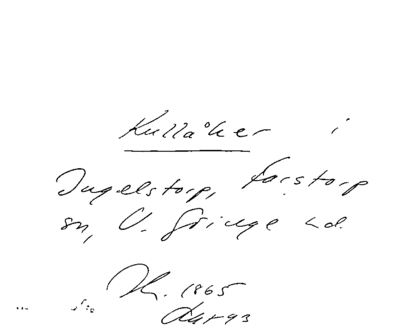 Kullåker i
Ingelstorp, Farstorp
sn, V. Göinge hd.
1865